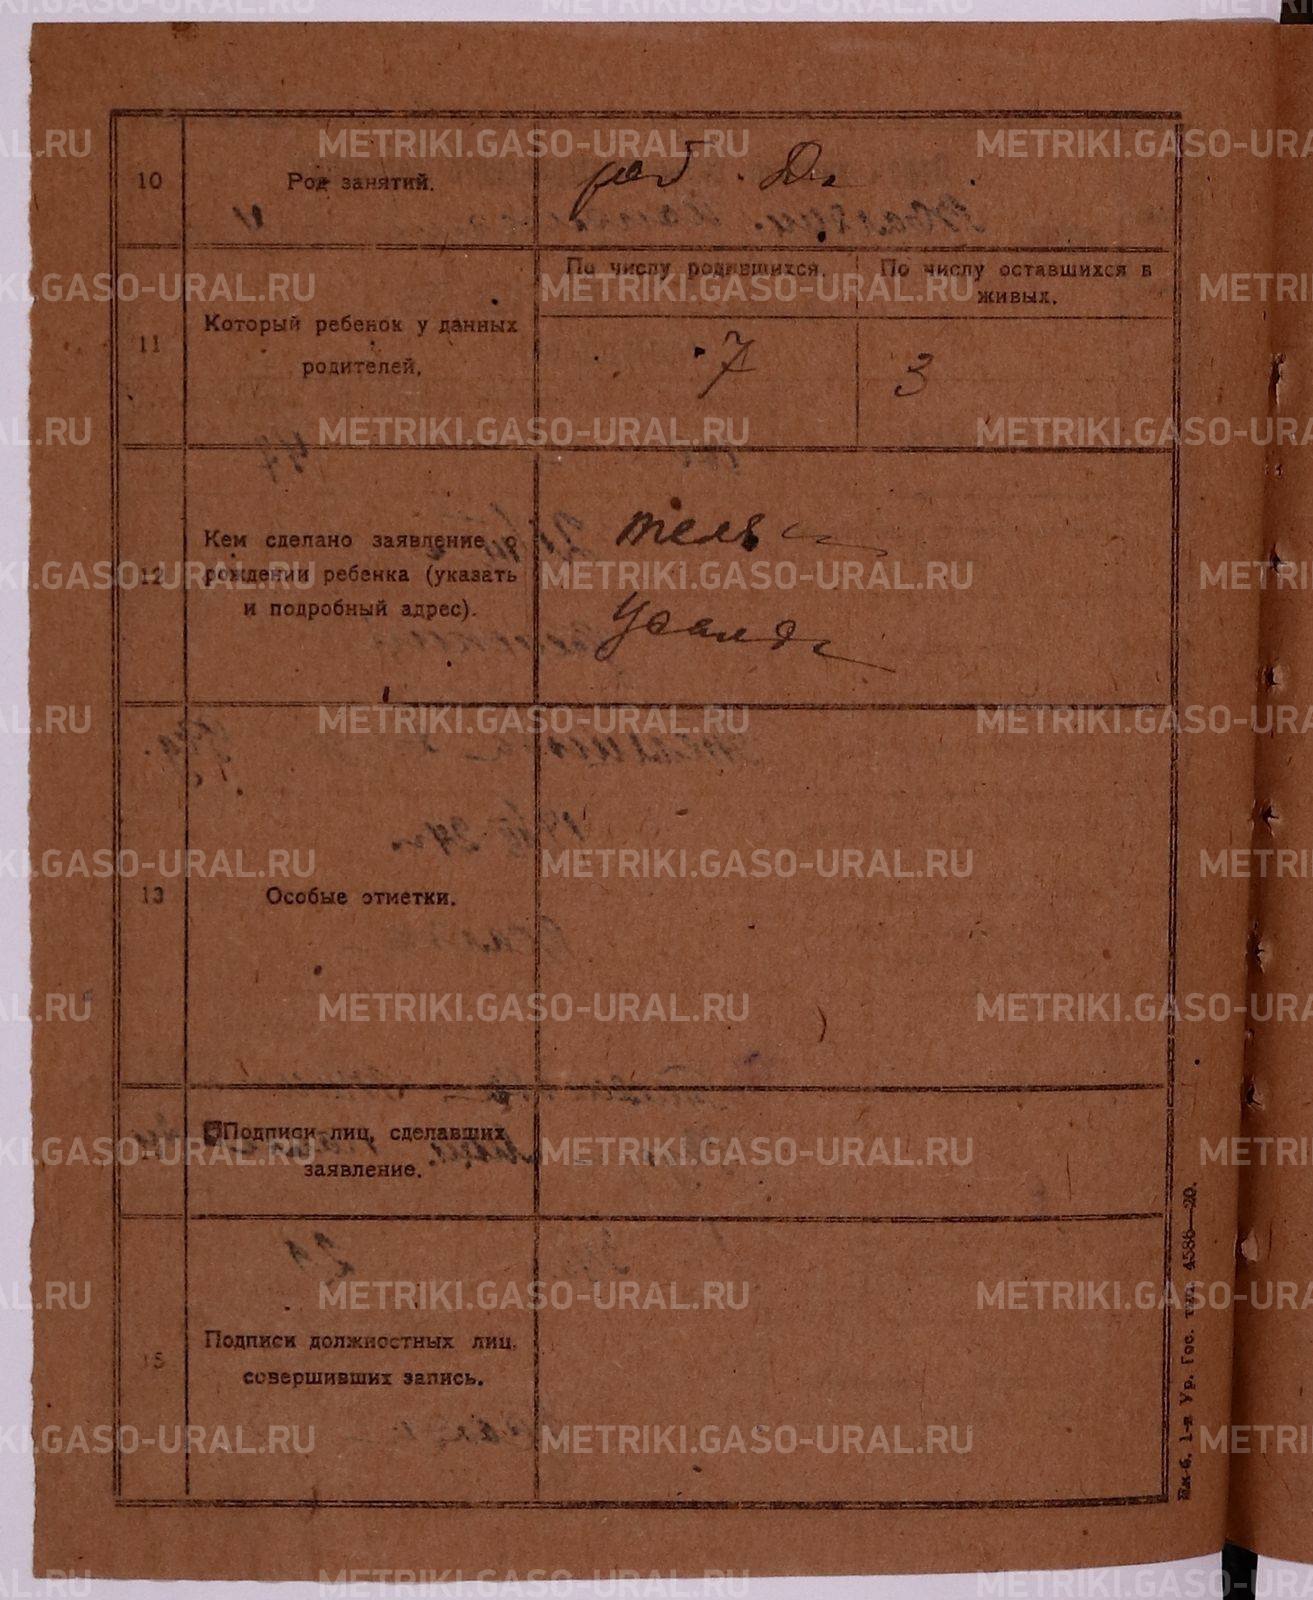 10
Род занятий.
раб.
11
Который ребенок у данных
родителей.
По числу родившихся.
По числу оставшихся в
живых.
7
3
12
Кем сделано заявление о
рождении ребенка (указать
и подробный адрес).
13
Особые отметки.
Подписи лиц, сделавших
заявление.
15
Подписи должностных лиц,
совершивших запись.
1-я Ур. Гос. тип. 4586—20.
METRIKI.GASO-URAL.RU